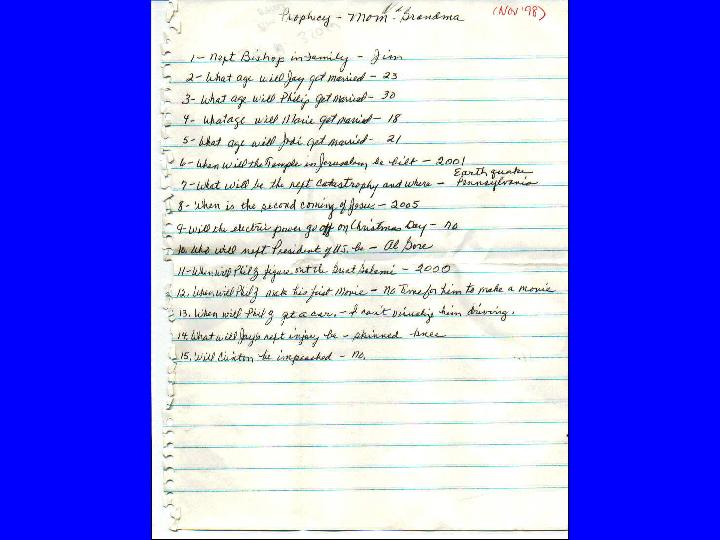 Prophecy - Mom - Grandma (Nov '98)
1- Next Bishop in family - Jim
2- What age will Jay get married - 23
3- What age will Philip get married - 30
4- What age will Marie get married - 18
5- What age will Jodi get married - 21
6- When will the Temple in Jerusalem be bilt - 2001
7- What will be the next catastrophy and where - Earthquake Pennsylvania
8- When is the second coming of Jesus - 2005
9- Will the electric power go off on Christmas Day - no
10. Who will next President of U.S. be - Al Gore
11- When will Phil Z figure out the Great - 2000
12. When will Phil Z make his first Movie - no Time for him to make a movie
13. When will Phil Z get a car. - I can't visualize him driving.
14. What will Jay's next injury be - skinned knee
15. Will Clinton be impeached - no.